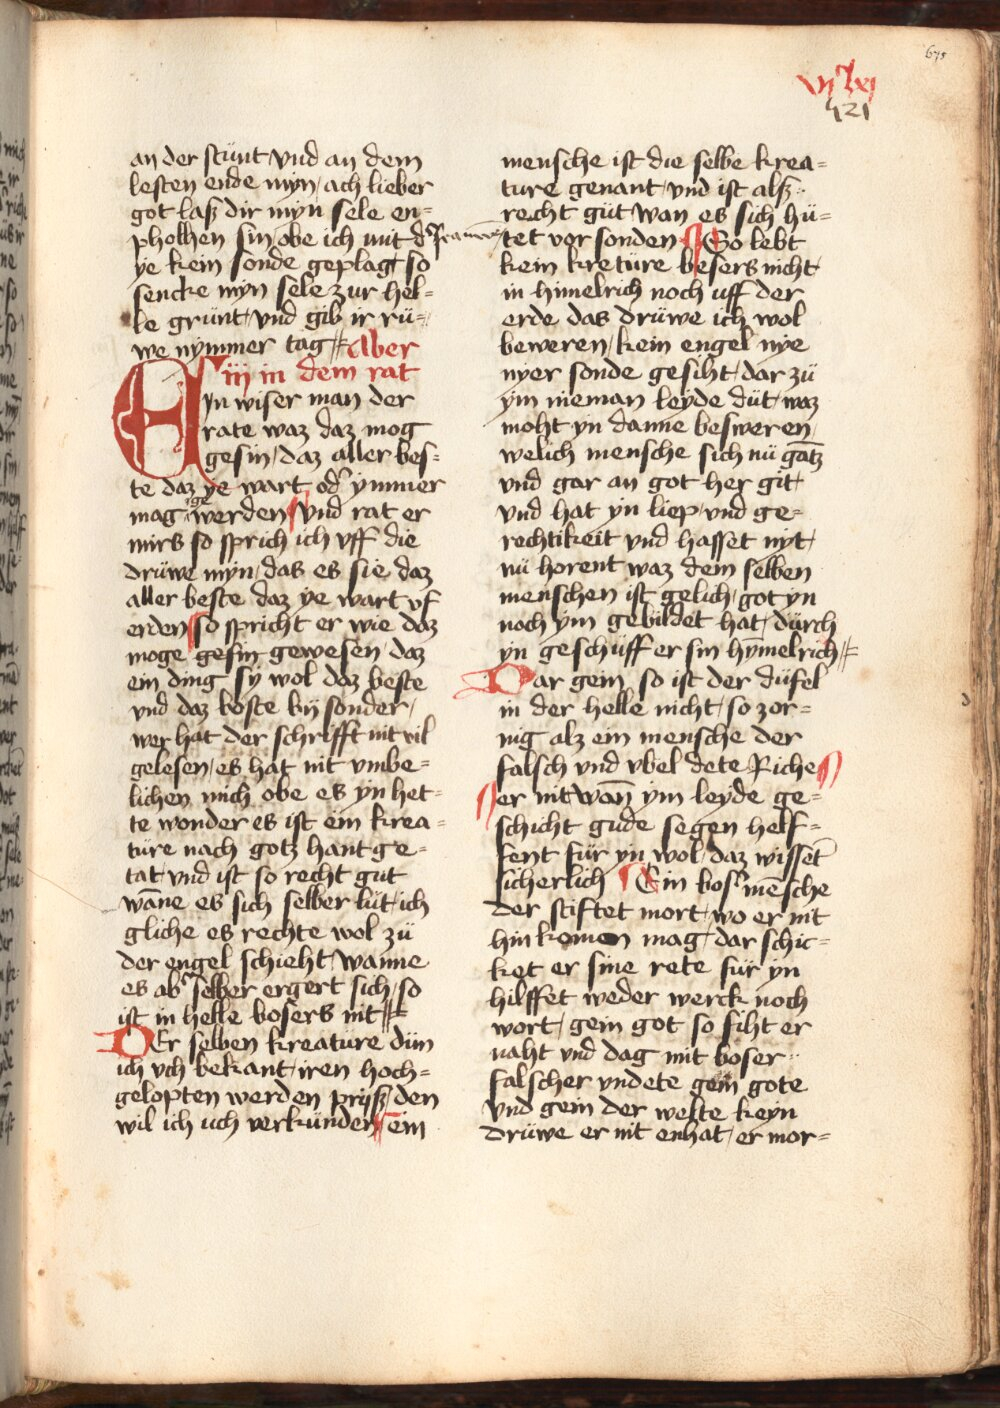 675
vij lxj
421
an der stünt vnd an dem
lesten ende myn / ach lieber
got lasz dir myn sele en=
pholhen sin / obe ich mit dˀ frauwen
ye kein sonde geplagt so
sencke myn sele zur hel=
le grünt / vnd gib ir rü=
we nymmer tag Aber
iij in dem rat
Eyn wiser man der
rate waz daz mog
gesin / daz aller bes=
te daz ye wart odˀ ymmer
mag ge werden vnd rat er
mirs so sprich ich vff die
drüwe myn / das es sie daz
aller beste daz ye wart vf
erden so spricht er wie daz
moge gesin gewesen / daz
ein ding sy wol daz beste
vnd daz boste by sonder /
wer hat der schrifft nit vil
gelesen / es hat nit vmbe=
lichen mich obe es yn het=
te wonder es ist ein krea=
türe nach gotz hant ge=
tat / vnd ist so recht gut
wāne es sich selber lüt / ich
gliche es rechte wol zü
der engel schieht / wanne
es abˀ selber ergert sich / so
ist in helle bosers nit
DEr selben kreatüre dün
ich vch bekant / iren hoch=
gelopten werden prijsz den
wil ich uch verkünden ein
mensche ist die selbe krea=
ture genant / vnd ist alsz
recht güt wan es sich hü=
tet vor sonden So lebt
kein kretüre besers nicht
in himelrich noch uff der
erde das drüwe ich wol
beweren / kein engel nye
nyer sonde gesiht / dar zü
ym nieman leyde düt / waz
moht yn danne besweren
welich mensche sich nü gātz
vnd gar an got her git /
vnd hat yn liep / vnd ge=
rechtikeit vnd hasset nyt /
nü horent waz dem selben
menschen ist gelich / got yn
noch ym gebildet hat / dürch
yn geschüff er sin hȳmelrich
Dar gein so ist der düfel
in der helle nicht / so zor=
nig alz ein mensche der
falsch vnd vbel dete Riche
er nit wān ym leyde ge=
schicht gude segen helf=
fent für yn wol / daz wissēt
sicherlich Ein bosˀ mēsche
der stiftet mort / wo er nit
hin komen mag / dar schic=
ket er sine rete für yn
hilffet weder werck noch
wort / gein got so siht er
naht vnd dag mit böser
falscher vndete gein gote
vnd gein der welte keyn
drüwe er nit enhat / er mor=